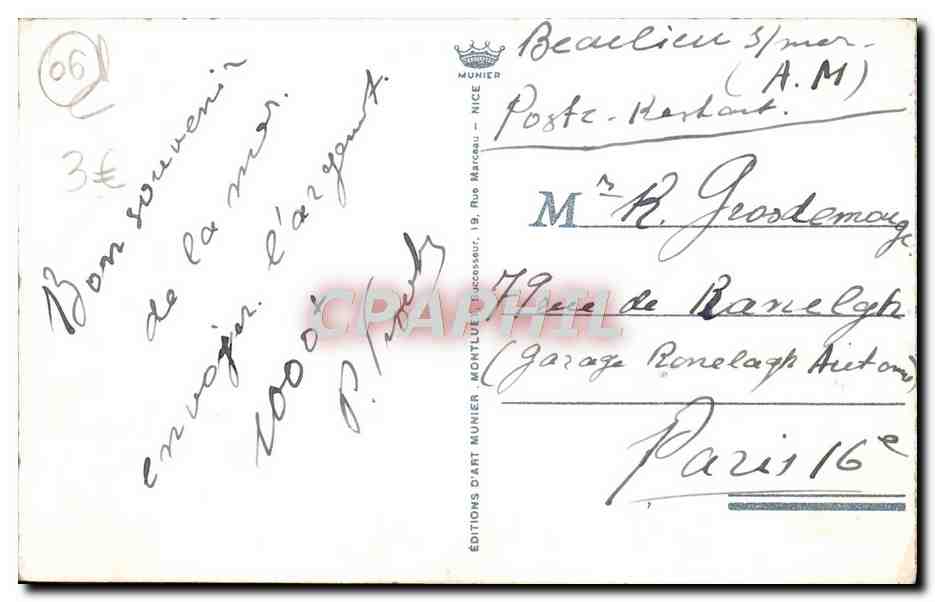 06
3€
Bon souvenir
de la mer.
envoyer l'argent.
100
P.
MUNIER
ÉDITIONS D'ART MUNIER. MONTLUET Successeur, 19, Rue Marceau - NICE
CPAPHIL
Beaulieu s/mer
(A.M)
Poste-Restant.
Mr R. Grosdemouge
79 rue de Ranelgh
(Garage Ronelagh
Paris 16e